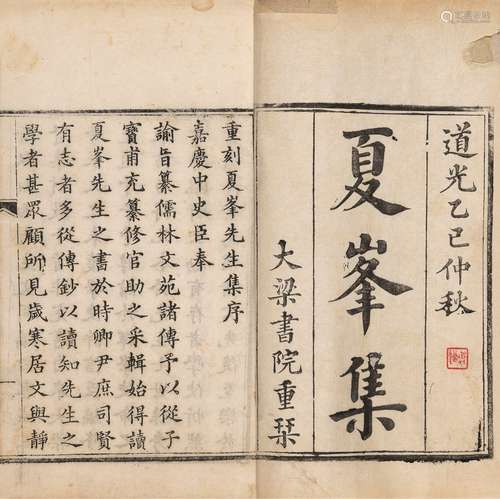 道光乙巳仲秋
夏峯集
大梁書院重栞
重刻夏峯先生集序
嘉慶中史臣奉
諭旨纂儒林文苑諸傳予以從子
寶甫充纂修官助之采輯始得讀
夏峯先生之書於時卿尹庶司賢
有志者多從傳鈔以讀知先生之
學者甚眾顧所見歲寒居文與靜